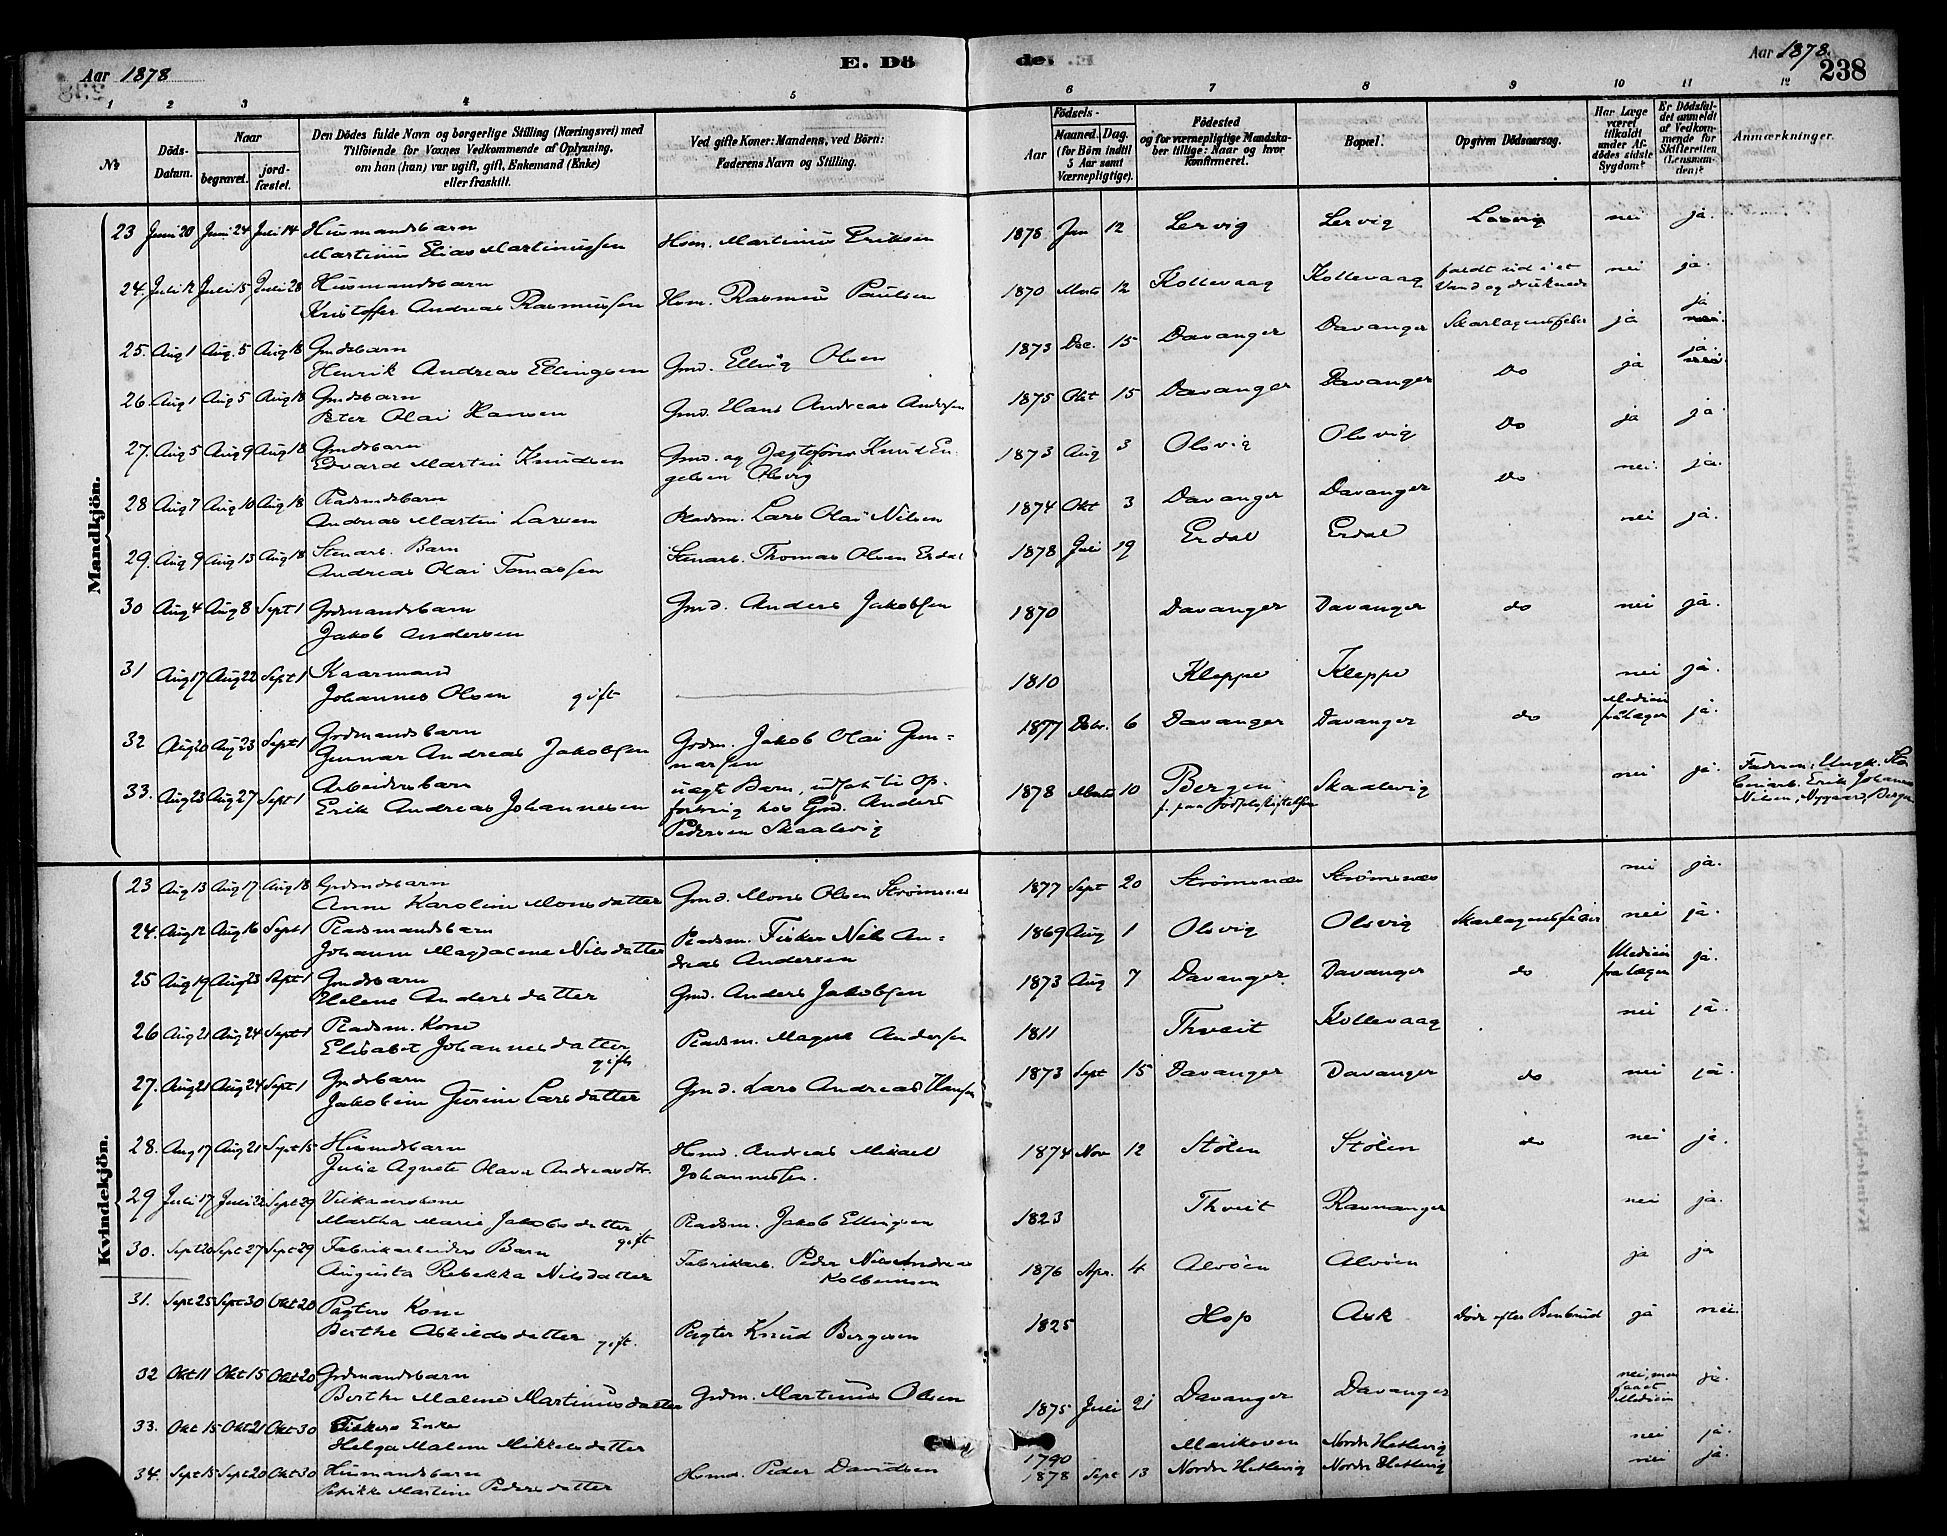 Aar 1878
E. Dö
de.
Aar 1878.
238
1 2 3 4 5 6 7 8 9 10 11 12
№
Döds-Datum.
Naar
begravet.
jordfæstet.
Den Dödes fulde Navn og borgerlige Stilling (Næringsvei) med
Tilföiende for Voxnes Vedkommende af Oplysning,
om han (hun) var ugift, gift, Enkemand (Enke)
eller fraskilt.
Ved gifte Koner: Mandens, ved Börn:
Faderens Navn og Stilling.
Födsels-
Aar
Maaned. Dag.
(for Börn indtil
5 Aar samt
Værnepligtige).
Födested
og for værnepligtige Mandska-
ber tillige: Naar og hvor
konfirmeret.
Bopæl.
Opgiven Dödsaarsag.
Har Læge
været
tilkaldt
under Af-
dödes sidste
Sygdom?
Er Dödsfal-
det anmeldt
af Vedkom-
mende for
Skifteretten
(Lensman-
den)?
Anmærkninger.
Mandkjön.
23 Juni 20 Juni 24 Juli 14 Husmandsbarn
Martinus Elias Martinussen Hsm. Martinus Eriksen 1878 Jan 12 Lervig Lervig nei ja.
24. Juli 12 Juli 15 Juli 28 Husmandsbarn
Kristoffer Andreas Rasmussen Hsm. Rasmus Paulsen 1870 Marts 12 Kollevaag Kollevaag faldt ud i et
Vand og druknede nei ja.
25. Aug 1 Aug. 5 Aug 18 Gmdsbarn
Henrik Andreas Ellingsen Gmd. Elling Olsen 1873 Dec. 15 Davanger Davanger Skarlagensfeber ja ja
26. Aug 1 Aug 5 Aug 18 Gmdsbarn
Peter Olai Hansen Gmd. Hans Andreas Andersen 1875 Okt 15 Davanger Davanger Do ja ja.
27. Aug 5 Aug 9 Aug 18 Gmdsbarn
Edvard Martin Knudsen Gmd. og Jægtefører Knud En-
gelsen Olsvig 1873 Aug 3 Olsvig Olsvig Do ja ja.
28 Aug 7 Aug 10 Aug 18 Pladsmdsbarn
Andreas Martin Larsen Pladsm. Lars Olai Nilsen 1874 Okt 3 Davanger Davanger Do nei. ja.
29. Aug 9 Aug 13 Aug 18 Stenarb. Barn
Andreas Olai Tomassen Stenarb. Thomas Olsen Erdal 1878 Juli 19 Erdal Erdal nei ja.
30 Aug 4 Aug 8 Sept 1 Grdmandsbarn
Jakob Andersen Gmd. Anders Jakobsen 1870 Davanger Davanger do nei ja.
31 Aug 17 Aug 22 Sept 1 Kaarmand
Johannes Olsen gift 1810 Kleppe Kleppe nei ja.
32 Aug 20 Aug 23 Sept 1 Grdmandsbarn
Gunnar Andreas Jakobsen Grdm. Jakob Olai Gun-
narsen 1877 Debr. 6 Davanger Davanger do Medicin
fra Læger ja.
33. Aug 23 Aug 27 Sept 1 Arbeidersbarn
Erik Andreas Johannesen uægt Barn, udsat til Op-
fostring hos Gmd. Anders
Pedersen Skaalevig 1878 Marts 10 Bergen
f. paa Fødselsstiftelsen Skaalevig nei ja. Faderen, Ungk.
Erik Johannes
Nilsen, Nygaard, Bergen
Kvindekjön.
23 Aug 13 Aug 17 Aug 18 Grdmdsbarn
Anne Karoline Monsdatter Gmd. Mons Olsen Strømsnes 1877 Sept 20 Strømsnes Strømsnes nei ja.
24. Aug 12 Aug 16 Sept 1 Pladsmandsbarn
Johanne Magdalene Nilsdatter Pladsm. Fisker Nils An-
dreas Andersen 1869 Aug 1 Olsvig Olsvig Skarlagensfeber nei ja.
25 Aug 19 Aug 23 Sept 1 Gmdsbarn
Helene Andersdatter Gmd. Anders Jakobsen 1873 Aug 7 Davanger. Davanger do Medicin
fra Læger ja.
26 Aug 21 Aug 24 Sept 1 Pladsm. Kone
Elisabet Johannesdatter
gift Pladsm. Magne Andersen 1811 Thveit Kollevaag nei ja.
27. Aug 21 Aug 24 Sept 1 Gmdsbarn
Jakobine Gurine Larsdatter Gmd. Lars Andreas Hansen 1873 Sept 15 Davanger Davanger do nei ja.
28. Aug 17 Aug 21 Sept 15 Husmdsbarn
Julie Agnete Olava Andreasdtr. Hsmd. Andreas Mikael
Johannessen. 1874 Nov 12 Stølen Stølen do nei ja.
29 Juli 17 Juli 22 Sept 29
Martha Marie Jakobsdatter
gift Pladsm. Jakob Ellingsen 1823 Thveit Ravnanger nei ja.
30. Sept 20 Sept 27 Sept 29 Fabrikarbeiders Barn
Augusta Rebekka Nilsdatter Fabrikarb. Peder Nils Andreas
Kolbeinsen 1876 Apr. 4 Alvøen Alvøen ja ja
31. Sept 25 Sept 30 Okt 20 Pagters Kone
Berthe Askildsdatter gift. Pagter Knud Bergesen 1825 Hop Ask Døde efter Benbrud ja nei.
32 Okt 11 Okt 15 Okt 20 Grdmandsbarn
Berthe Malene Martinusdatter Grdm. Martinus Olsen 1875 Juli 21 Davanger Davanger nei, men
faaet
Medicin ja.
33. Okt 15 Okt 21 Okt 30 Fiskers Enke
Helga Malene Mikkelsdatter 1790 Marikoven Nordr Hetlevig nei ja.
34. Sept 15 Sept 20 Okt 30 Husmandsbarn
Petrikke Martine Pedersdatter Hsmd. Peder Davidsen 1878 Sept 13 Nordre Hetlevig Nordre Hetlevig nei ja.